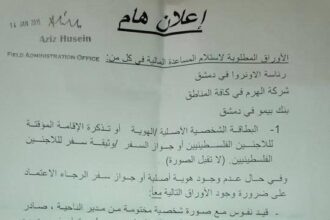 إعلان هام
14 JAN 2015
Aziz Husein
FIELD ADMINISTRATION OFFICE
الأوراق المطلوبة لاستلام المساعدة المالية في كل من:
رئاسة الاونروا في دمشق
شركة الهرم في كافة المناطق
بنك بيمو في دمشق
1- البطاقة الشخصية الأصلية /الهوية أو تذكرة الإقامة المؤقتة
للاجئين الفلسطينيين أو جواز السفر /وثيقة سفر للاجئين
الفلسطينيين. (لا تقبل الصورة)
وفي حال عدم وجود هوية أصلية أو جواز سفر الرجاء الاعتماد
على ضرورة وجود الأوراق التالية معاً:
قيد نفوس مع صورة شخصية مختومة من مدير الناحية ، صادر